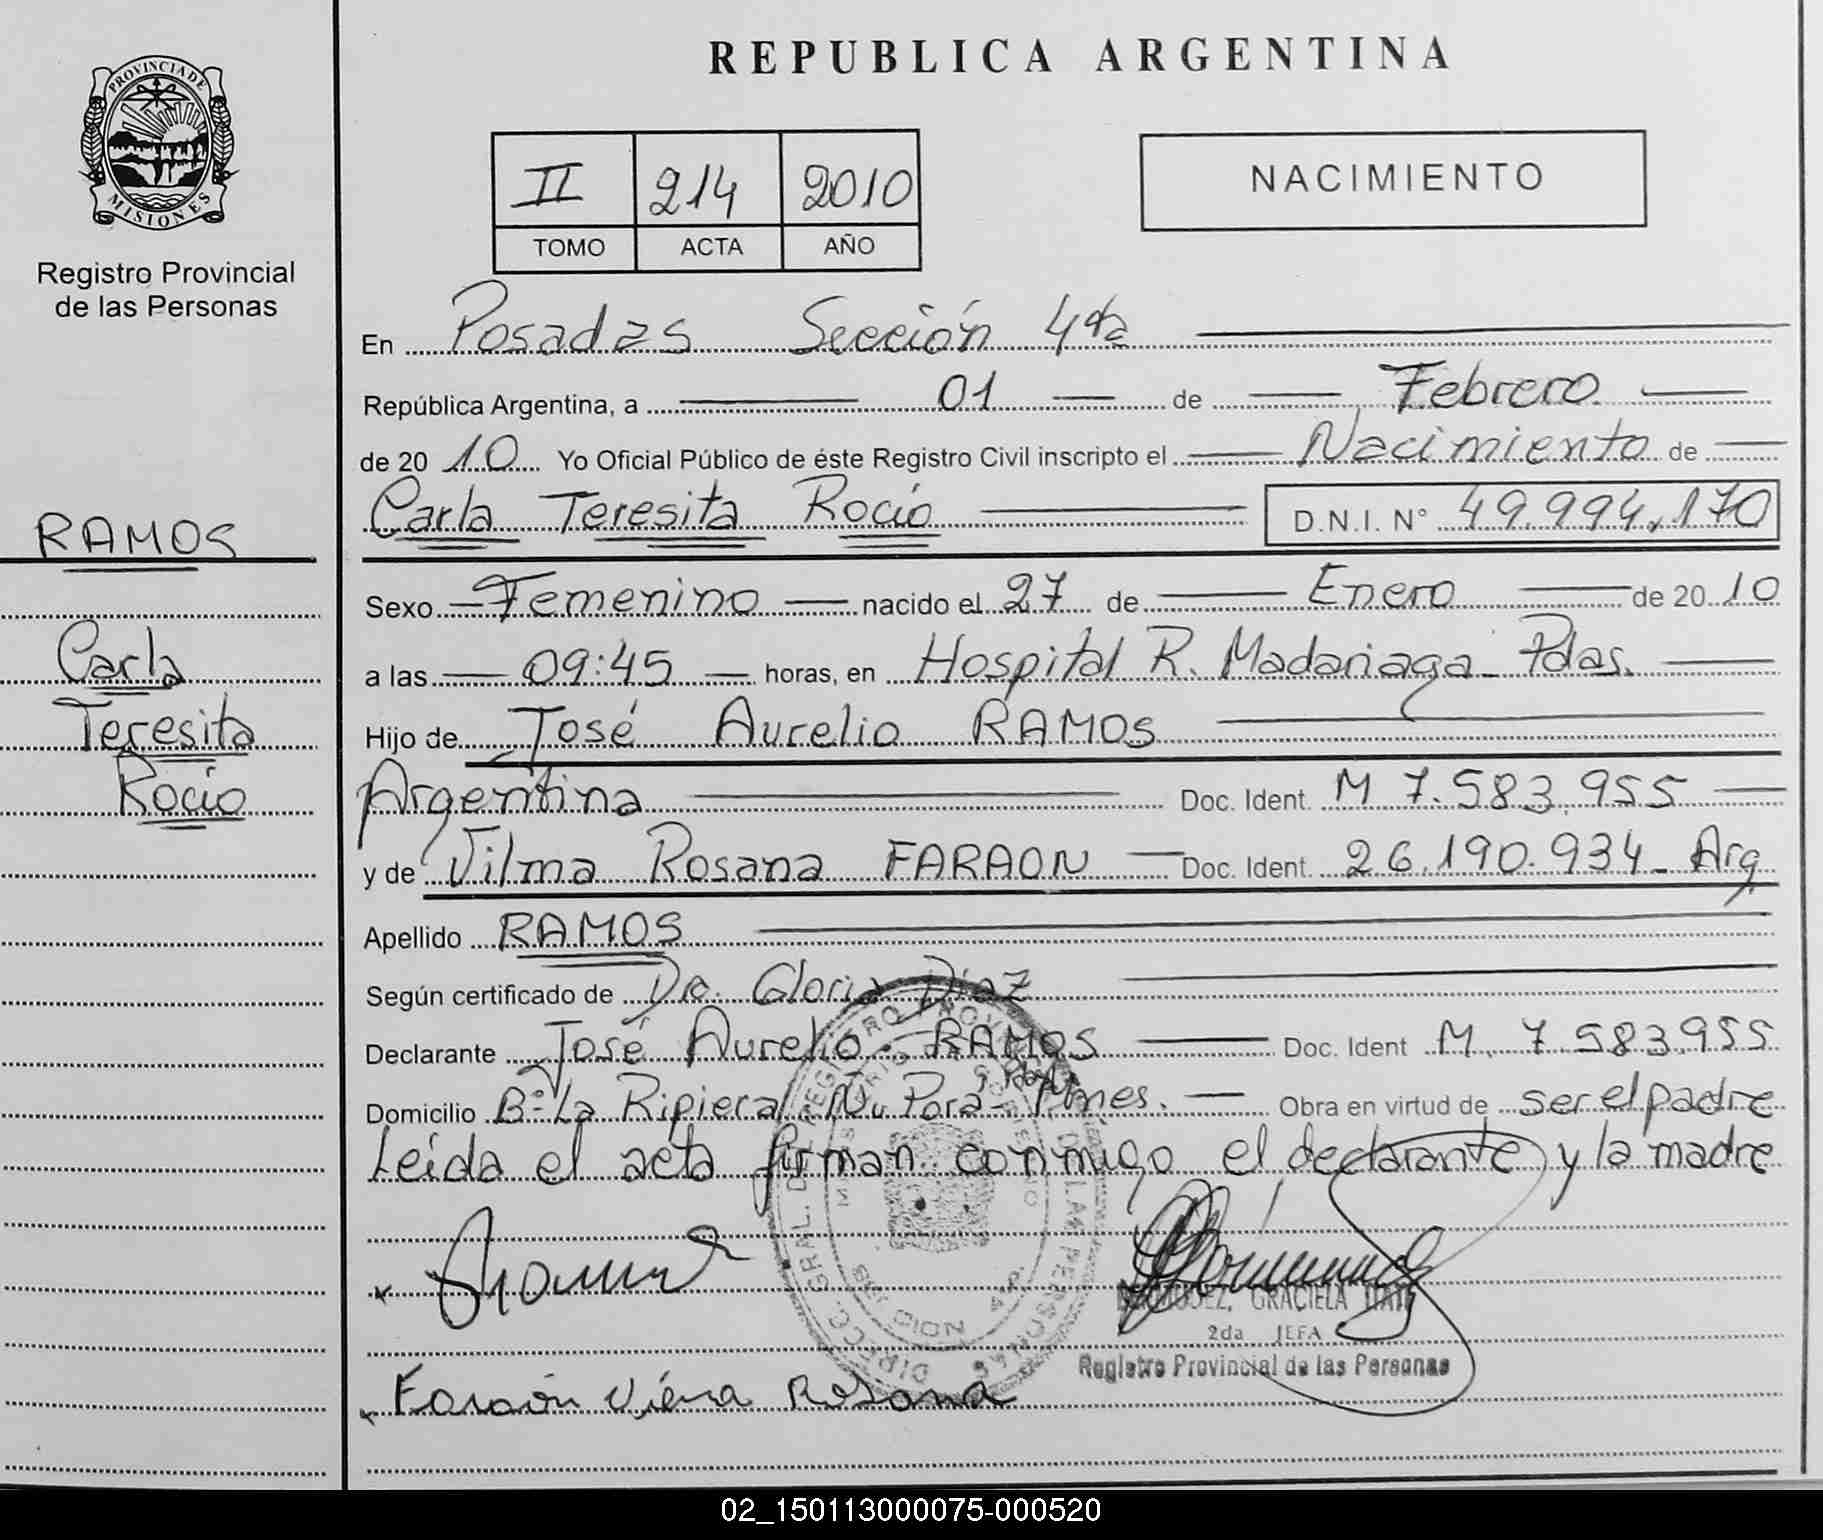 PROVINCIA DE
MISIONES
Registro Provincial
de las Personas
RAMOS
Carla
Teresita
Rocío
REPUBLICA ARGENTINA
II 214 2010
TOMO ACTA AÑO
NACIMIENTO
En Posadas Sección 4ta
República Argentina, a 01 de Febrero
de 20 10 Yo Oficial Público de éste Registro Civil inscripto el Nacimiento de
Carla Teresita Rocío D.N.I. N° 49.994.170
Sexo Femenino nacido el 27 de Enero de 20 10
a las 09:45 horas, en Hospital R. Madariaga - Pdas.
Hijo de José Aurelio RAMOS
Argentina Doc. Ident. M 7.583.955
y de Vilma Rosana FARAON Doc. Ident. 26.190.934 - Arg
Apellido RAMOS
Según certificado de Dra. Gloria Díaz
Declarante José Aurelio RAMOS Doc. Ident M. 7.583.955
Domicilio B° La Ripiera Pdas. Mnes. Obra en virtud de ser el padre
Leída el acta firman conmigo el declarante y la madre
GRACIELA
2da JEFA
Registro Provincial de las Personas
Rosana
02_150113000075-000520